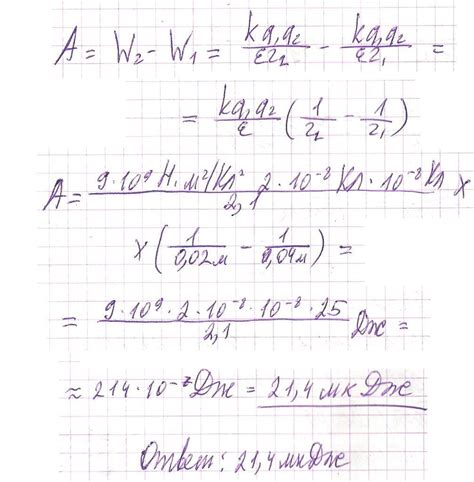 A = W₂ - W₁ = kq₁q₂/εr₂ - kq₁q₂/εr₁ =
= kq₁q₂/ε (1/r₂ - 1/r₁)
A = 9·10⁹ Н·м²/Кл² 2·10⁻⁸ Кл·10⁻⁸ Кл/2,1 ×
× (1/0,02м - 1/0,04м) =
= 9·10⁹·2·10⁻⁸·10⁻⁸·25/2,1 Дж =
≈ 214·10⁻⁷ Дж = 21,4 мкДж
Ответ: 21,4 мкДж